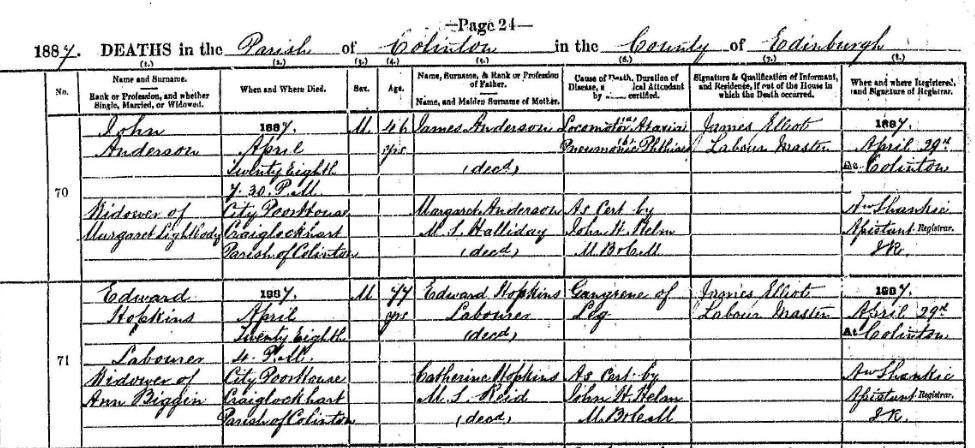 —Page 24—
1887. DEATHS in the Parish of Colinton in the County of Edinburgh
(1.) (2.) (3.) (4.) (5.) (6.) (7.) (8.)
No.
Name and Surname.
Rank or Profession, and whether Single, Married, or Widowed.
When and Where Died.
Sex.
Age.
Name, Surname, & Rank or Profession of Father.
Name, and Maiden Surname of Mother.
Cause of Death, Duration of Disease, and Medical Attendant by whom certified.
Signature & Qualification of Informant, and Residence, if out of the House in which the Death occurred.
When and where Registered, and Signature of Registrar.
70
John
Anderson
Widower of
Margaret Lightbody
1887
April
Twenty Eighth
7. 30. P.M.
City Poorhouse
Craiglockhart
Parish of Colinton
M.
46
yrs
James Anderson
(decd)
Margaret Anderson
M. S. Halliday
(decd)
Locomotor Ataxia
Pneumonic Phthisis
As Cert by
John H. Helm
M.B. & C.M.
James Elliot
Labour Master
1887
April 29th
At Colinton
Wm Shankie
Assistant Registrar.
71
Edward
Hopkins
Labourer
Widower of
Ann Biggin
1887
April
Twenty Eighth
4. P.M.
City Poorhouse
Craiglockhart
Parish of Colinton
M.
77
yrs
Edward Hopkins
Labourer
(decd)
Catherine Hopkins
M. S. Reid
(decd)
Gangrene of
Leg
As Cert. by
John H. Helm
M.B. & C.M.
James Elliot
Labour Master
1887
April 29th
At Colinton
Wm Shankie
Assistant Registrar.